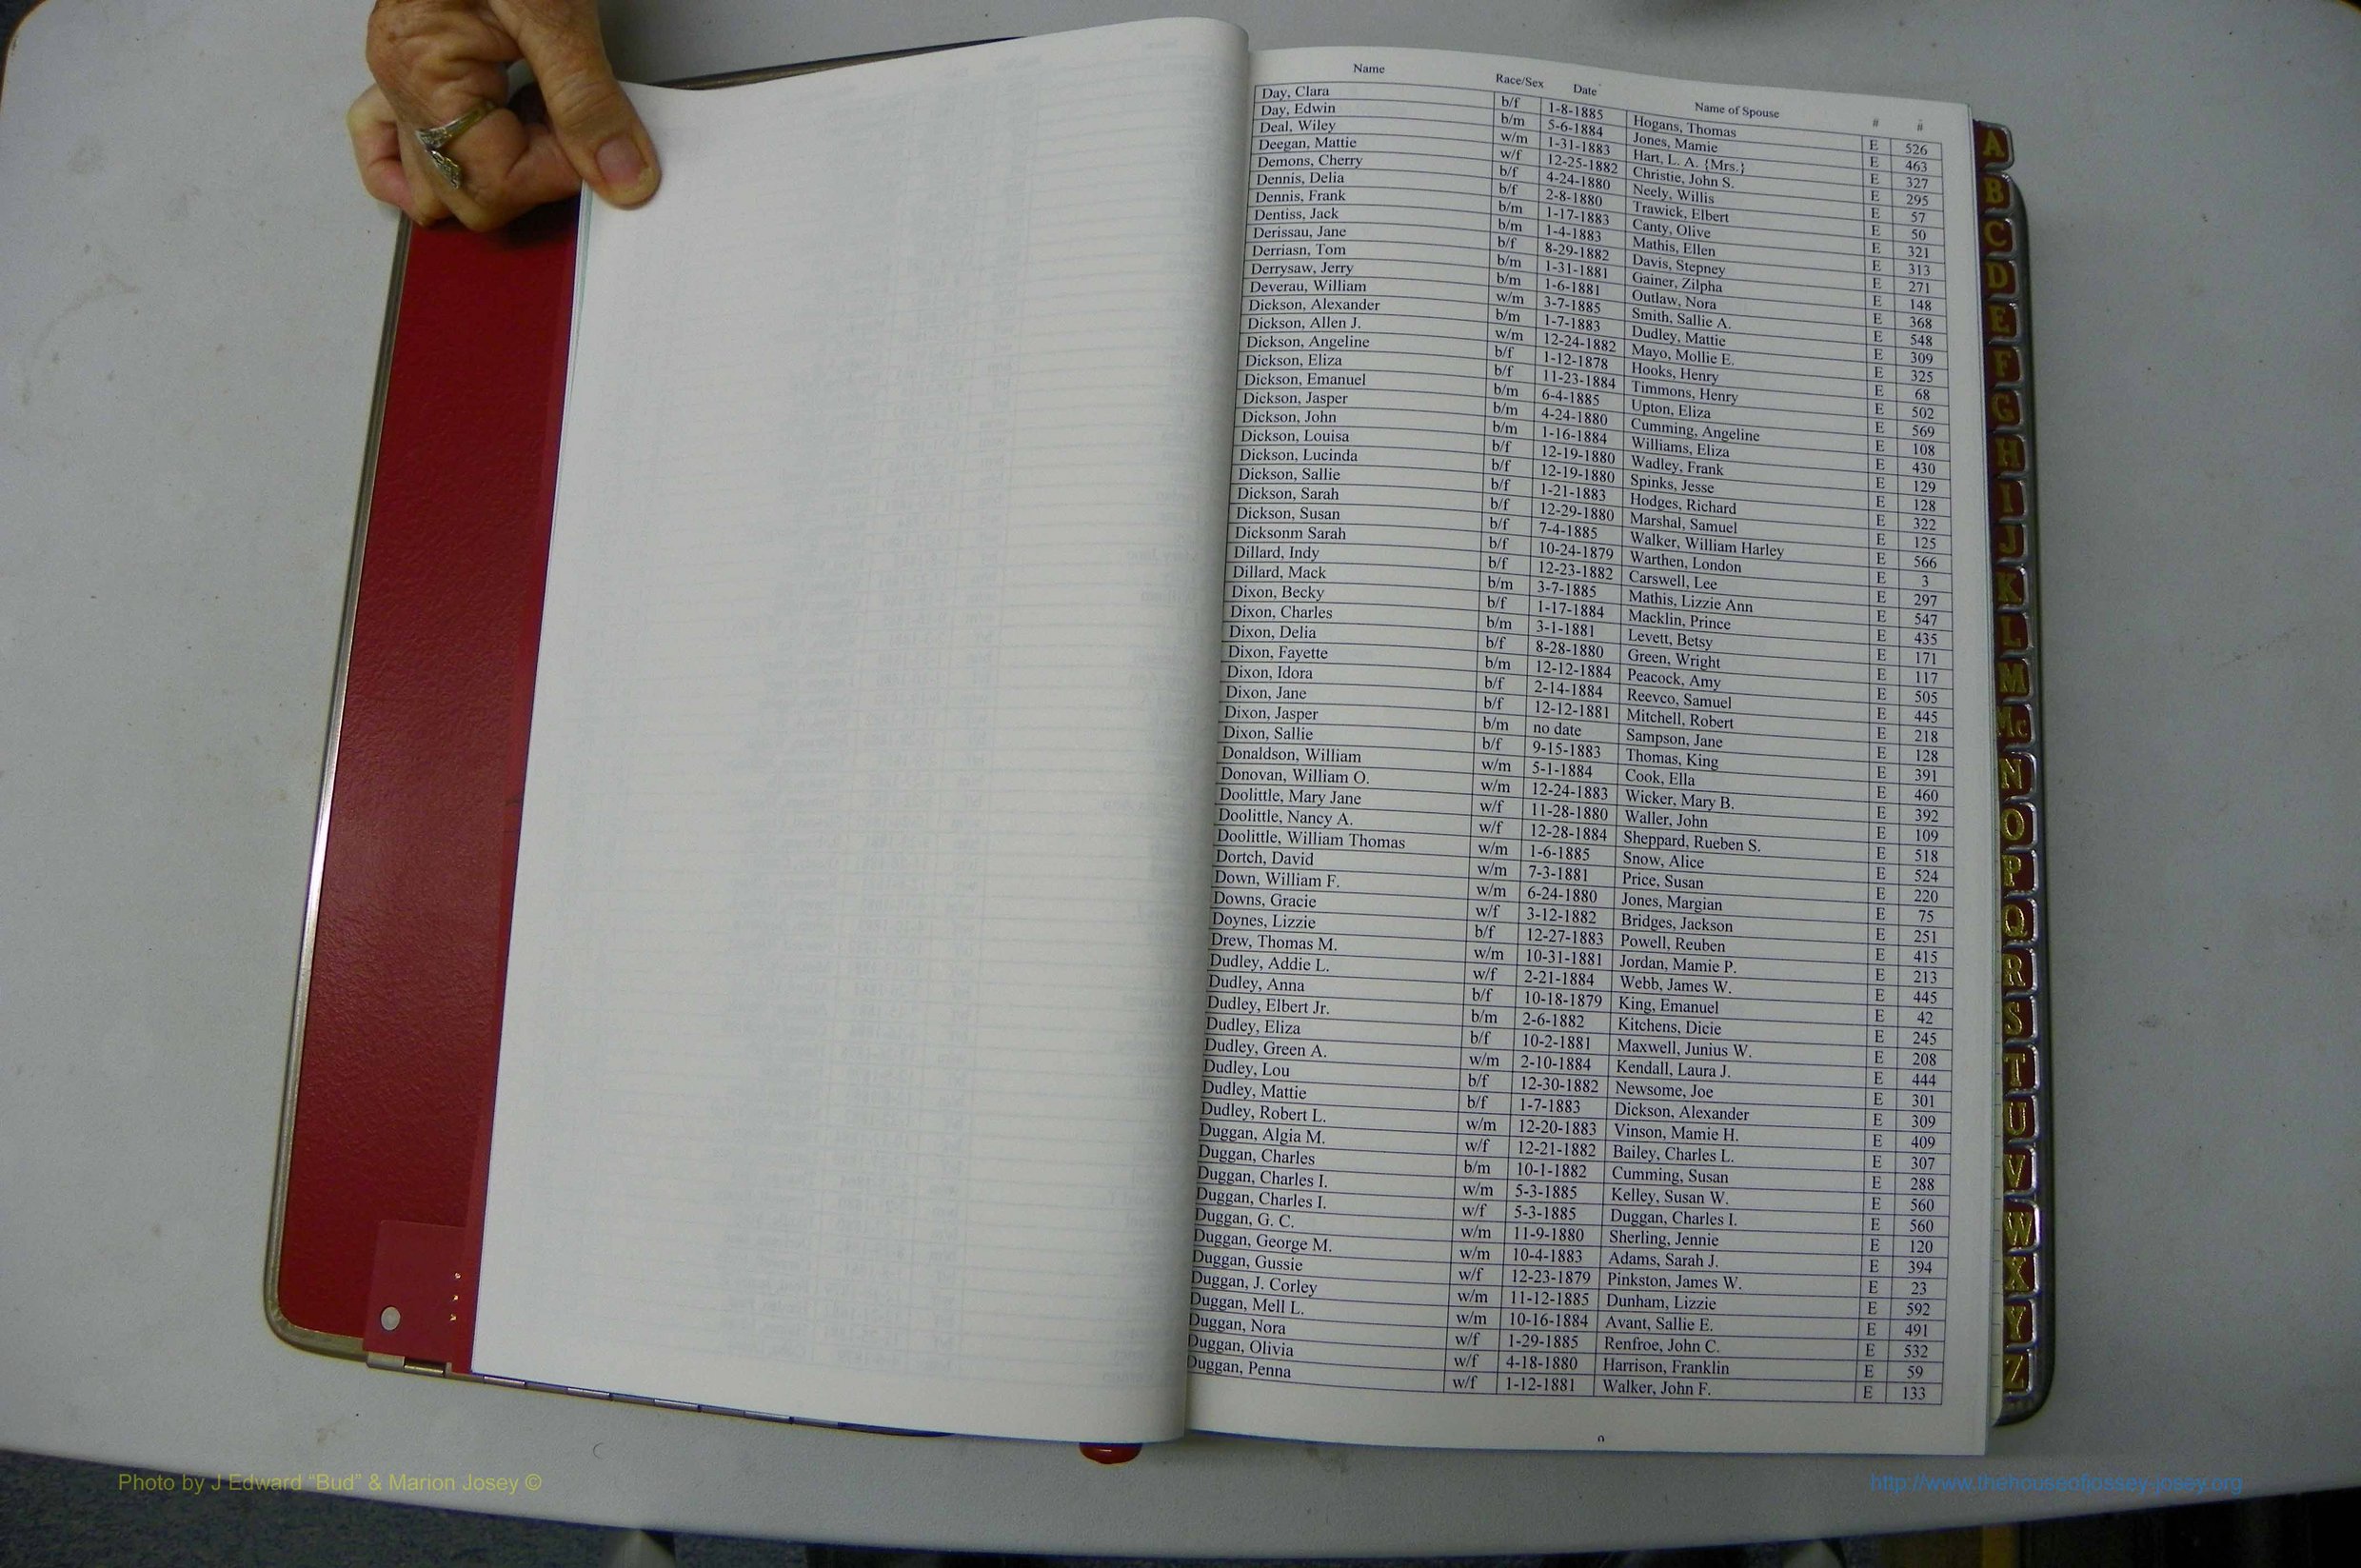 Name Race/Sex Date Name of Spouse # #
Day, Clara b/f 1-8-1885 Hogans, Thomas E 526
Day, Edwin b/m 5-6-1884 Jones, Mamie E 463
Deal, Wiley w/m 1-31-1883 Hart, L. A. {Mrs.} E 327
Deegan, Mattie w/f 12-25-1882 Christie, John S. E 295
Demons, Cherry b/f 4-24-1880 Neely, Willis E 57
Dennis, Delia b/f 2-8-1880 Trawick, Elbert E 50
Dennis, Frank b/m 1-17-1883 Canty, Olive E 321
Dentiss, Jack b/m 1-4-1883 Mathis, Ellen E 313
Derissau, Jane b/f 8-29-1882 Davis, Stepney E 271
Derriasn, Tom b/m 1-31-1881 Gainer, Zilpha E 148
Derrysaw, Jerry b/m 1-6-1881 Outlaw, Nora E 368
Deverau, William w/m 3-7-1885 Smith, Sallie A. E 548
Dickson, Alexander b/m 1-7-1883 Dudley, Mattie E 309
Dickson, Allen J. w/m 12-24-1882 Mayo, Mollie E. E 325
Dickson, Angeline b/f 1-12-1878 Hooks, Henry E 68
Dickson, Eliza b/f 11-23-1884 Timmons, Henry E 502
Dickson, Emanuel b/m 6-4-1885 Upton, Eliza E 569
Dickson, Jasper b/m 4-24-1880 Cumming, Angeline E 108
Dickson, John b/m 1-16-1884 Williams, Eliza E 430
Dickson, Louisa b/f 12-19-1880 Wadley, Frank E 129
Dickson, Lucinda b/f 12-19-1880 Spinks, Jesse E 128
Dickson, Sallie b/f 1-21-1883 Hodges, Richard E 322
Dickson, Sarah b/f 12-29-1880 Marshal, Samuel E 125
Dickson, Susan b/f 7-4-1885 Walker, William Harley E 566
Dicksonm Sarah b/f 10-24-1879 Warthen, London E 3
Dillard, Indy b/f 12-23-1882 Carswell, Lee E 297
Dillard, Mack b/m 3-7-1885 Mathis, Lizzie Ann E 547
Dixon, Becky b/f 1-17-1884 Macklin, Prince E 435
Dixon, Charles b/m 3-1-1881 Levett, Betsy E 171
Dixon, Delia b/f 8-28-1880 Green, Wright E 117
Dixon, Fayette b/m 12-12-1884 Peacock, Amy E 505
Dixon, Idora b/f 2-14-1884 Reevco, Samuel E 445
Dixon, Jane b/f 12-12-1881 Mitchell, Robert E 218
Dixon, Jasper b/m no date Sampson, Jane E 128
Dixon, Sallie b/f 9-15-1883 Thomas, King E 391
Donaldson, William w/m 5-1-1884 Cook, Ella E 460
Donovan, William O. w/m 12-24-1883 Wicker, Mary B. E 392
Doolittle, Mary Jane w/f 11-28-1880 Waller, John E 109
Doolittle, Nancy A. w/f 12-28-1884 Sheppard, Rueben S. E 518
Doolittle, William Thomas w/m 1-6-1885 Snow, Alice E 524
Dortch, David w/m 7-3-1881 Price, Susan E 220
Down, William F. w/m 6-24-1880 Jones, Margian E 75
Downs, Gracie w/f 3-12-1882 Bridges, Jackson E 251
Doynes, Lizzie b/f 12-27-1883 Powell, Reuben E 415
Drew, Thomas M. w/m 10-31-1881 Jordan, Mamie P. E 213
Dudley, Addie L. w/f 2-21-1884 Webb, James W. E 445
Dudley, Anna b/f 10-18-1879 King, Emanuel E 42
Dudley, Elbert Jr. b/m 2-6-1882 Kitchens, Dicie E 245
Dudley, Eliza b/f 10-2-1881 Maxwell, Junius W. E 208
Dudley, Green A. w/m 2-10-1884 Kendall, Laura J. E 444
Dudley, Lou b/f 12-30-1882 Newsome, Joe E 301
Dudley, Mattie b/f 1-7-1883 Dickson, Alexander E 309
Dudley, Robert L. w/m 12-20-1883 Vinson, Mamie H. E 409
Duggan, Algia M. w/f 12-21-1882 Bailey, Charles L. E 307
Duggan, Charles b/m 10-1-1882 Cumming, Susan E 288
Duggan, Charles I. w/m 5-3-1885 Kelley, Susan W. E 560
Duggan, Charles I. w/f 5-3-1885 Duggan, Charles I. E 560
Duggan, G. C. w/m 11-9-1880 Sherling, Jennie E 120
Duggan, George M. w/m 10-4-1883 Adams, Sarah J. E 394
Duggan, Gussie w/f 12-23-1879 Pinkston, James W. E 23
Duggan, J. Corley w/m 11-12-1885 Dunham, Lizzie E 592
Duggan, Mell L. w/m 10-16-1884 Avant, Sallie E. E 491
Duggan, Nora w/f 1-29-1885 Renfroe, John C. E 532
Duggan, Olivia w/f 4-18-1880 Harrison, Franklin E 59
Duggan, Penna w/f 1-12-1881 Walker, John F. E 133
A
B
C
D
E
F
G
H
I
J
K
L
M
Mc
N
O
P
Q
R
S
T
U
V
W
X
Y
Z
Photo by J Edward “Bud” & Marion Josey ©
http://www.thehouseofjossey-josey.org